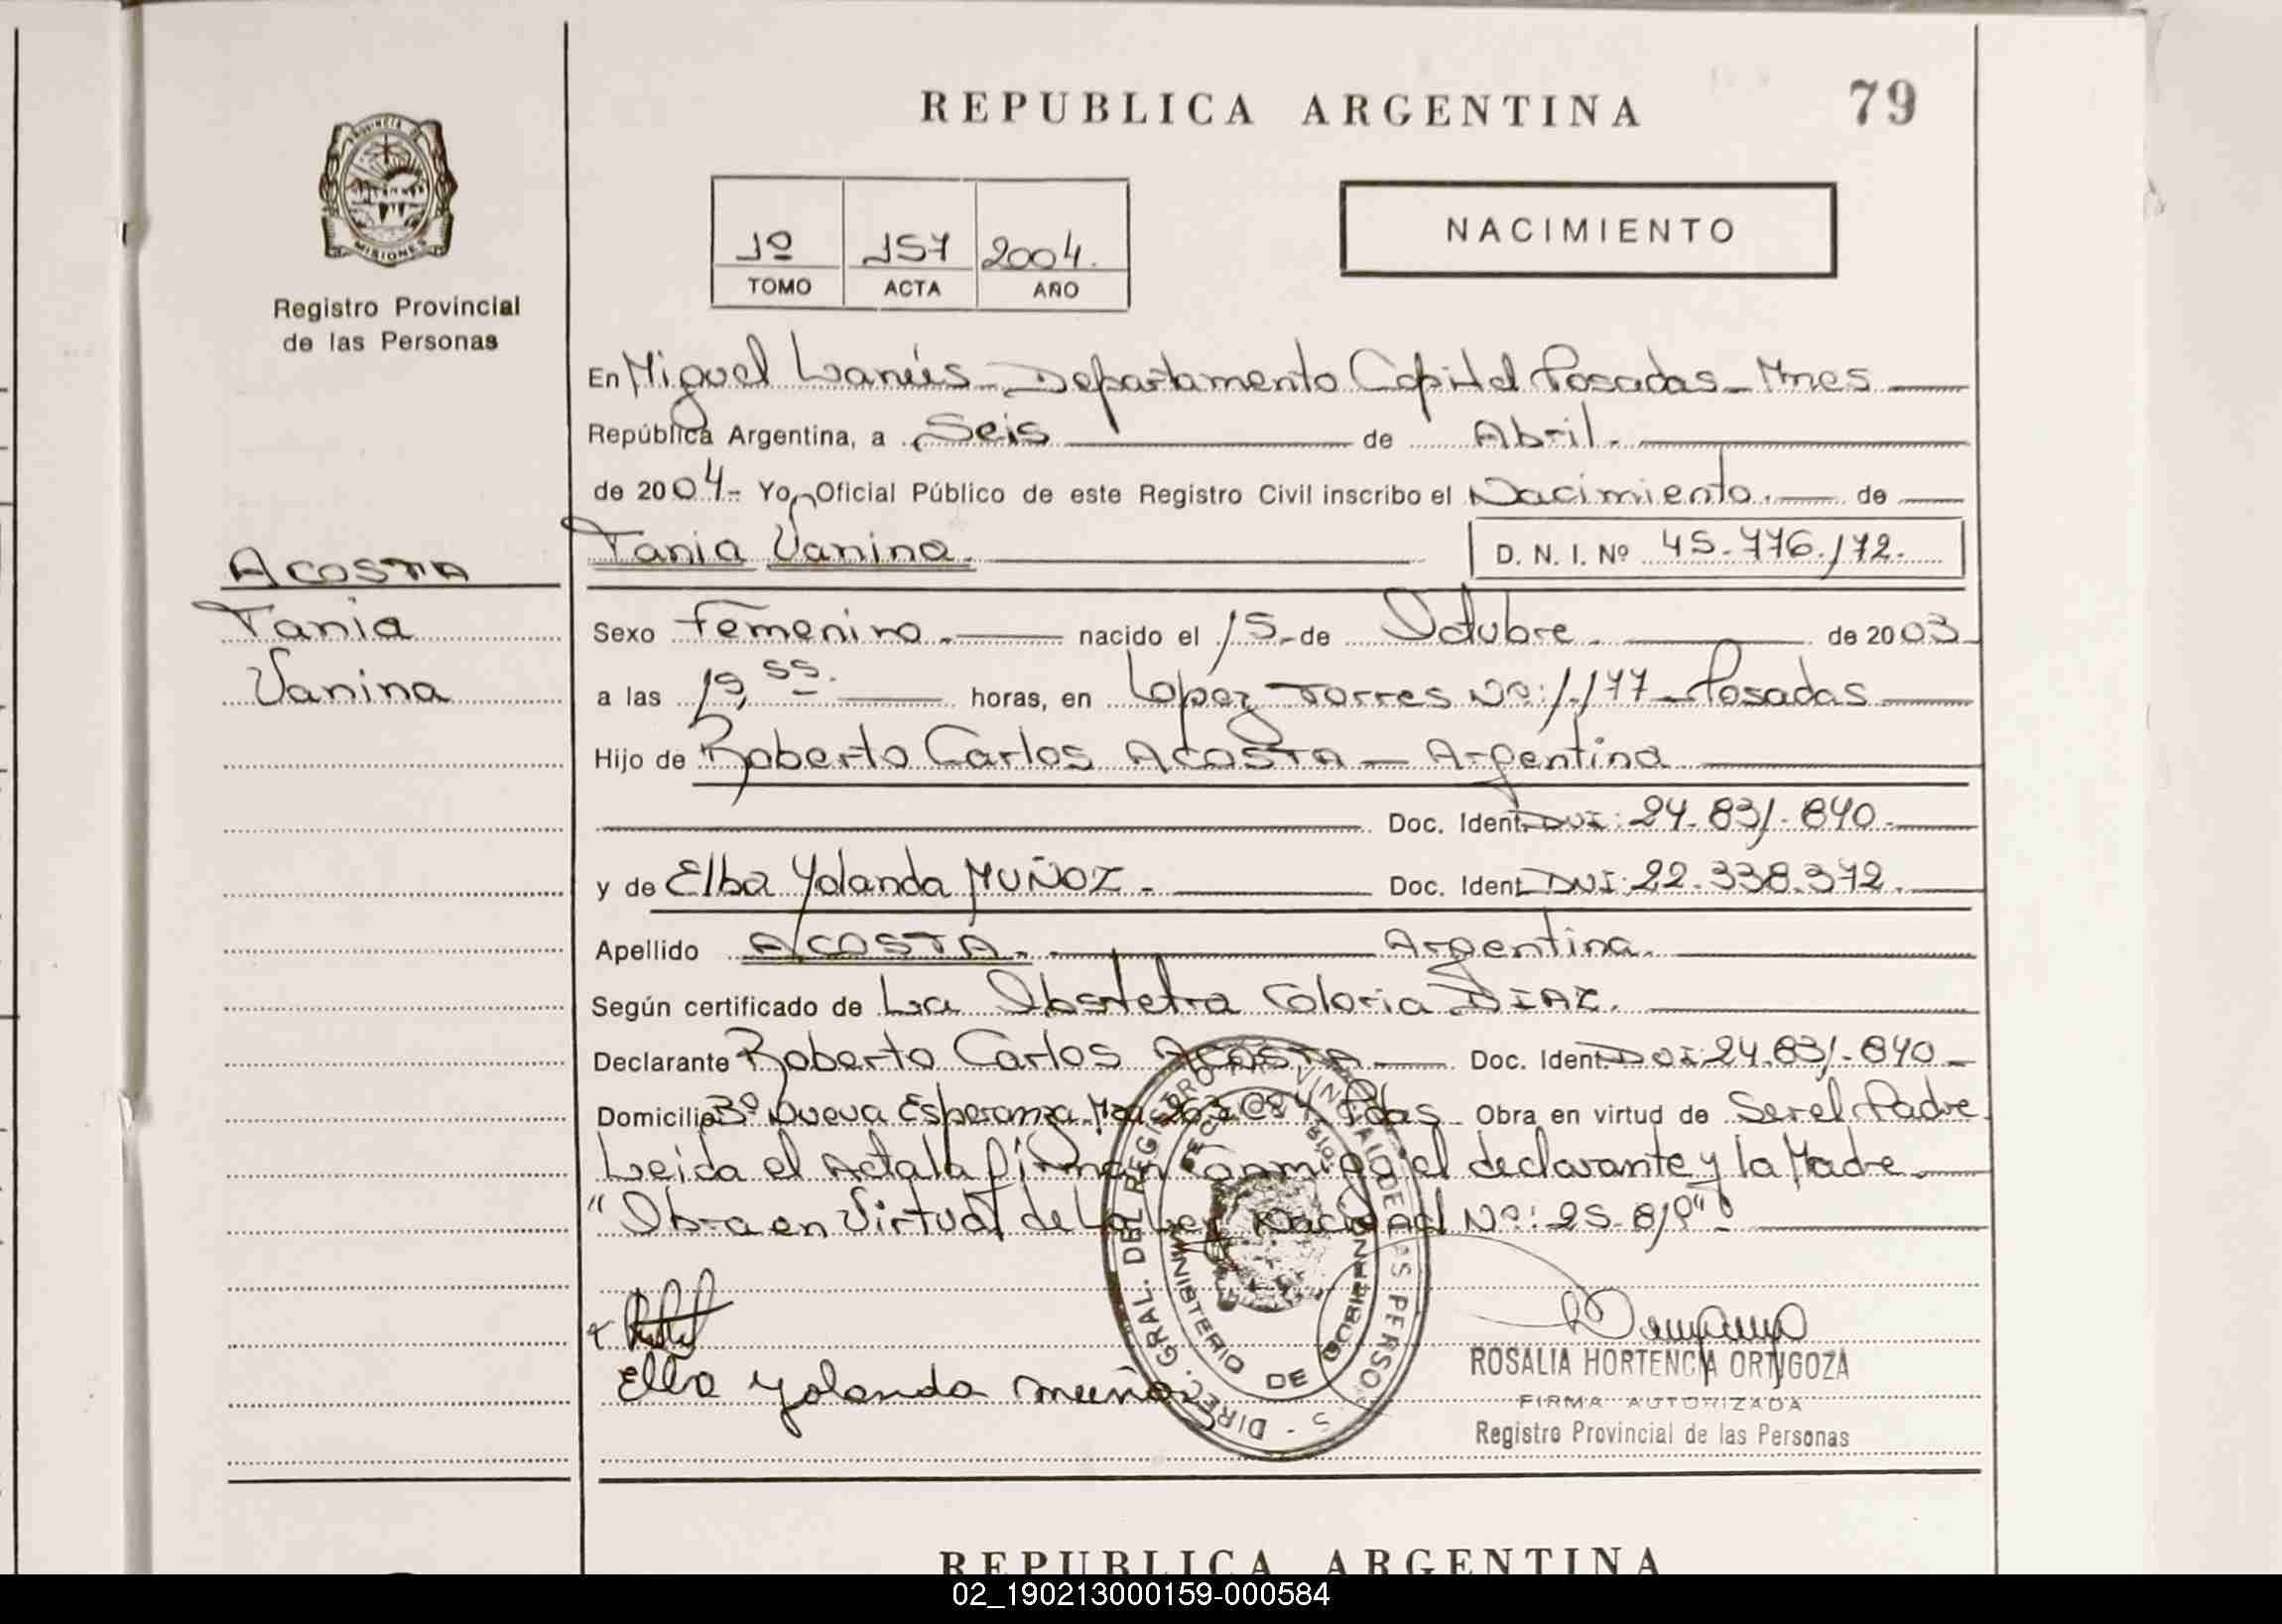 REPUBLICA ARGENTINA 79
PROVINCIA DE
MISIONES
Registro Provincial
de las Personas
1º 157 2004.
TOMO ACTA AÑO
NACIMIENTO
En Miguel Lanús Departamento Capital Posadas - Mnes
República Argentina, a Seis de Abril.
de 2004- Yo, Oficial Público de este Registro Civil inscribo el Nacimiento de
Tania Vanina. D. N. I. Nº 45.776.172.
ACOSTA
Tania
Vanina
Sexo Femenino.- nacido el 15- de Octubre. de 2003
a las 19,55. horas, en Lopez Torres Nº: 1.177 - Posadas
Hijo de Roberto Carlos ACOSTA - Argentina
Doc. Ident. DNI: 24.831.840.
y de Elba Yolanda MUÑOZ. Doc. Ident. DNI: 22.338.372.
Apellido ACOSTA. Argentina.
Según certificado de La Obstetra DIAZ.
Declarante Roberto Carlos ACOSTA Doc. Ident. DNI: 24.831.840
Domicilio Bº Nueva Esperanza Pdas Obra en virtud de Ser el Padre
Leida el Acta la firman conmigo el declarante y la Madre.
"Obra en Virtud de La Ley Nacional Nº: 25.819".
Elba Yolanda Muñoz
DIREC. GRAL. DEL REGISTRO PROVINCIAL DE LAS PERSONAS
MINISTERIO DE GOBIERNO
ROSALIA HORTENCIA ORTIGOZA
FIRMA AUTORIZADA
Registro Provincial de las Personas
REPUBLICA ARGENTINA
02_190213000159-000584